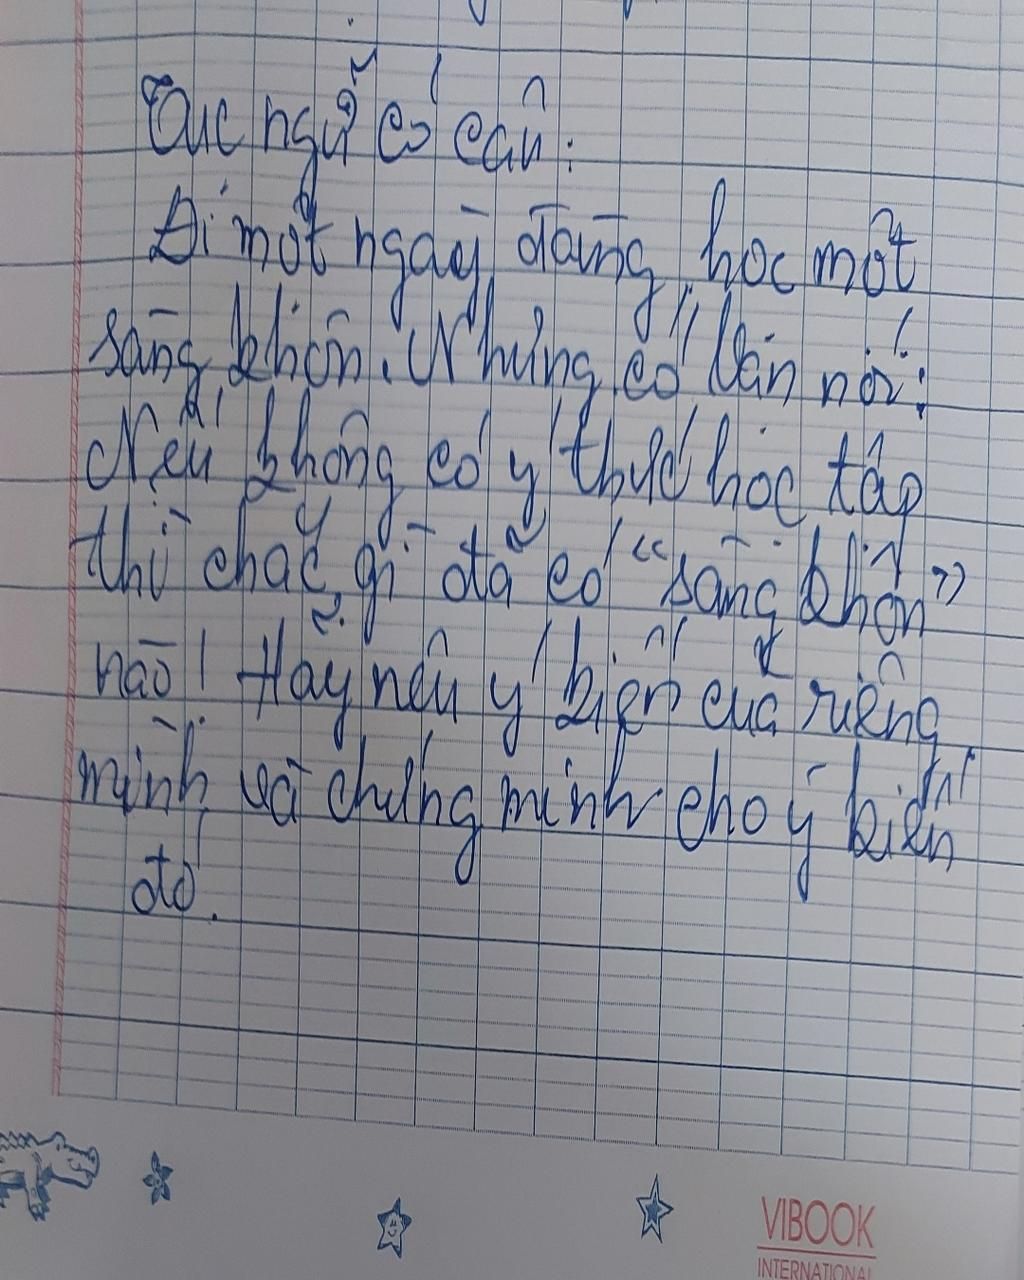 Tục ngữ có câu:
Đi một ngày đàng, học một
sàng khôn. Nhưng có bạn nói:
Nếu không có ý thức học tập
thì chắc gì đã có "sàng khôn"
nào! Hãy nêu ý kiến của riêng
mình và chứng minh cho ý kiến
đó.
VIBOOK
INTERNATIONAL